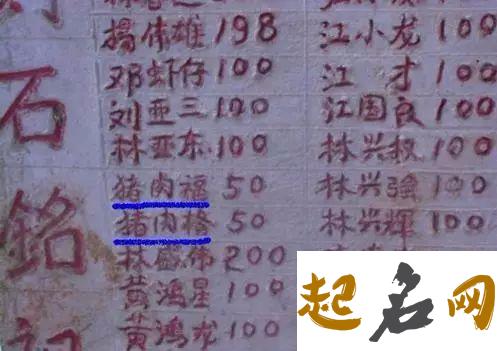 石
銘
揚伟雄 198
邓虾仔 100
刘亚三 100
林亚东 100
猪肉福 50
猪肉格 50
林盛伟 200
黄鸿星 100
黄鸿龙 100
江小龙 100
江才 100
江国良 100
林兴权 100
林兴强 100
林兴辉 100
起名网